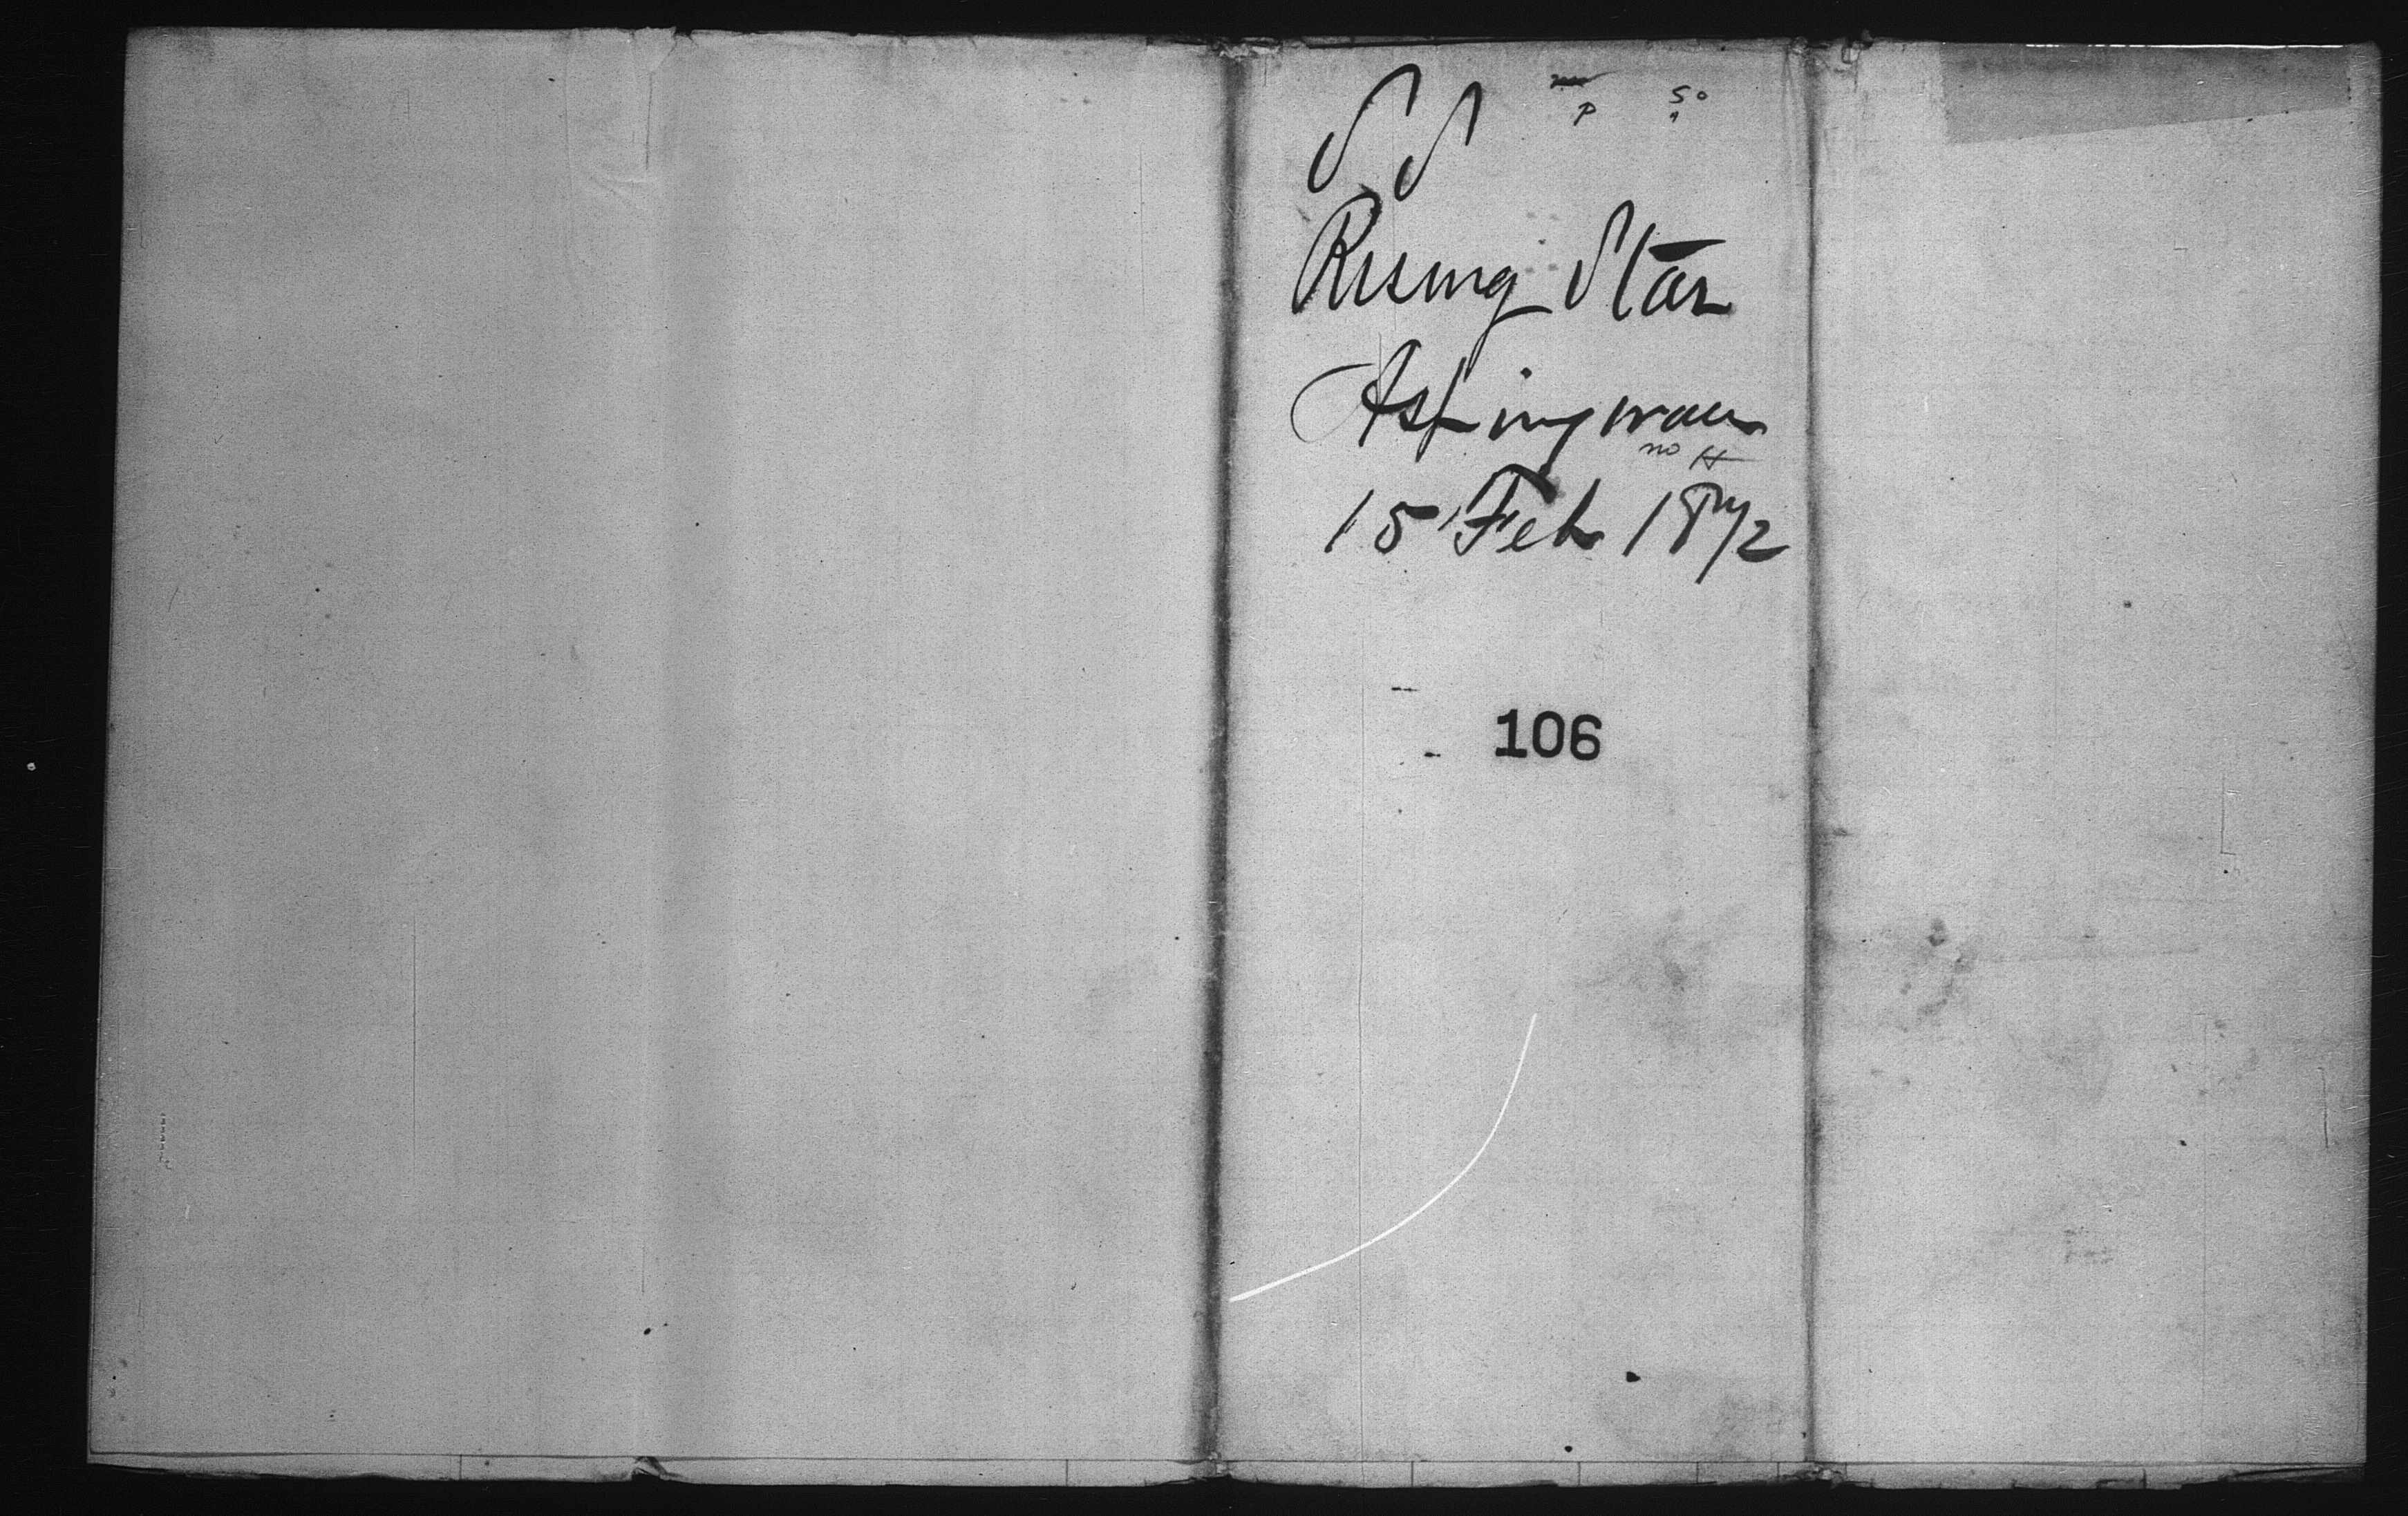 S S
p 50
Rising Star
Aspinwall
no H
15 Feb 1872
106